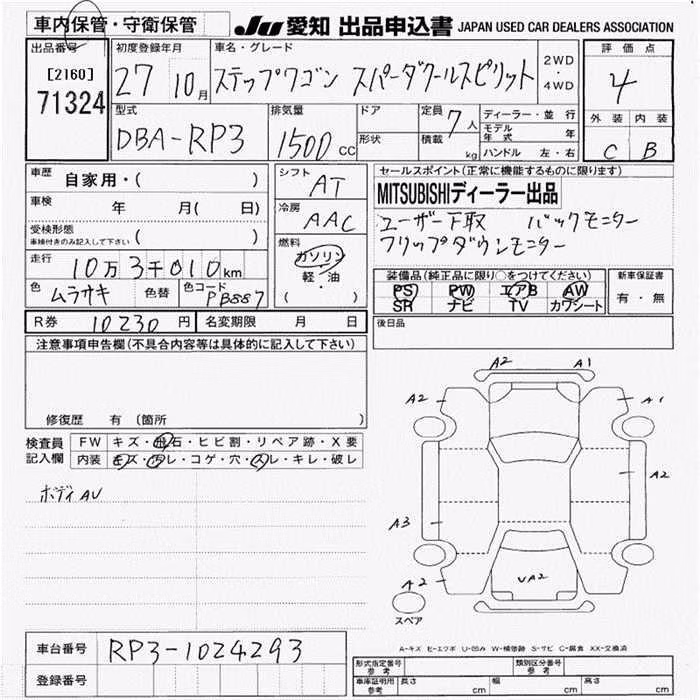 車内保管・守衛保管 JU 愛知 出品申込書 JAPAN USED CAR DEALERS ASSOCIATION
出品番号 初度登録年月 車名・グレード 2WD・4WD 評価点
[2160] 27 10月 ステップワゴン スパーダクールスピリット 4
71324
型式 排気量 ドア 定員 7人 ディーラー・並行 外装 内装
DBA-RP3 1500cc 形状 積載 kg モデル年式 年
ハンドル 左・右 C B
車歴 自家用・( ) シフト AT セールスポイント(正常に機能するものに限ります)
車検 年 月( 日) 冷房 AAC MITSUBISHIディーラー出品
受検形態 ( ) ユーザー下取 バックモニター
車検付きのみ記入して下さい フリップダウンモニター
走行 10万3千010km 燃料 ガソリン・軽・油 ( )
装備品(純正品に限り○をつけてください) 新車保証書
色 ムラサキ 色替 色コード PB887 PS PW エアB AW 有・無
SR ナビ TV カワシート
R券 10230円 名変期限 月 日 後日品
注意事項申告欄(不具合内容等は具体的に記入して下さい)
修復歴 有 (箇所 )
検査員記入欄 FW キズ・飛石・ヒビ割・リペア跡・X要
内装 キズ・汚レ・コゲ・穴・スレ・キレ・破レ
ボディAU
A2 A1
A2 A1
A2
A3
A2 UA2
スペア
A-キズ E-エクボ U-凹み W-補修跡 S-サビ C-腐食 XX-交換済
車台番号 RP3-1024293
登録番号
形式指定番号 参考 類別区分番号 参考
車庫証明用 参考 長さ cm 幅 cm 高さ cm